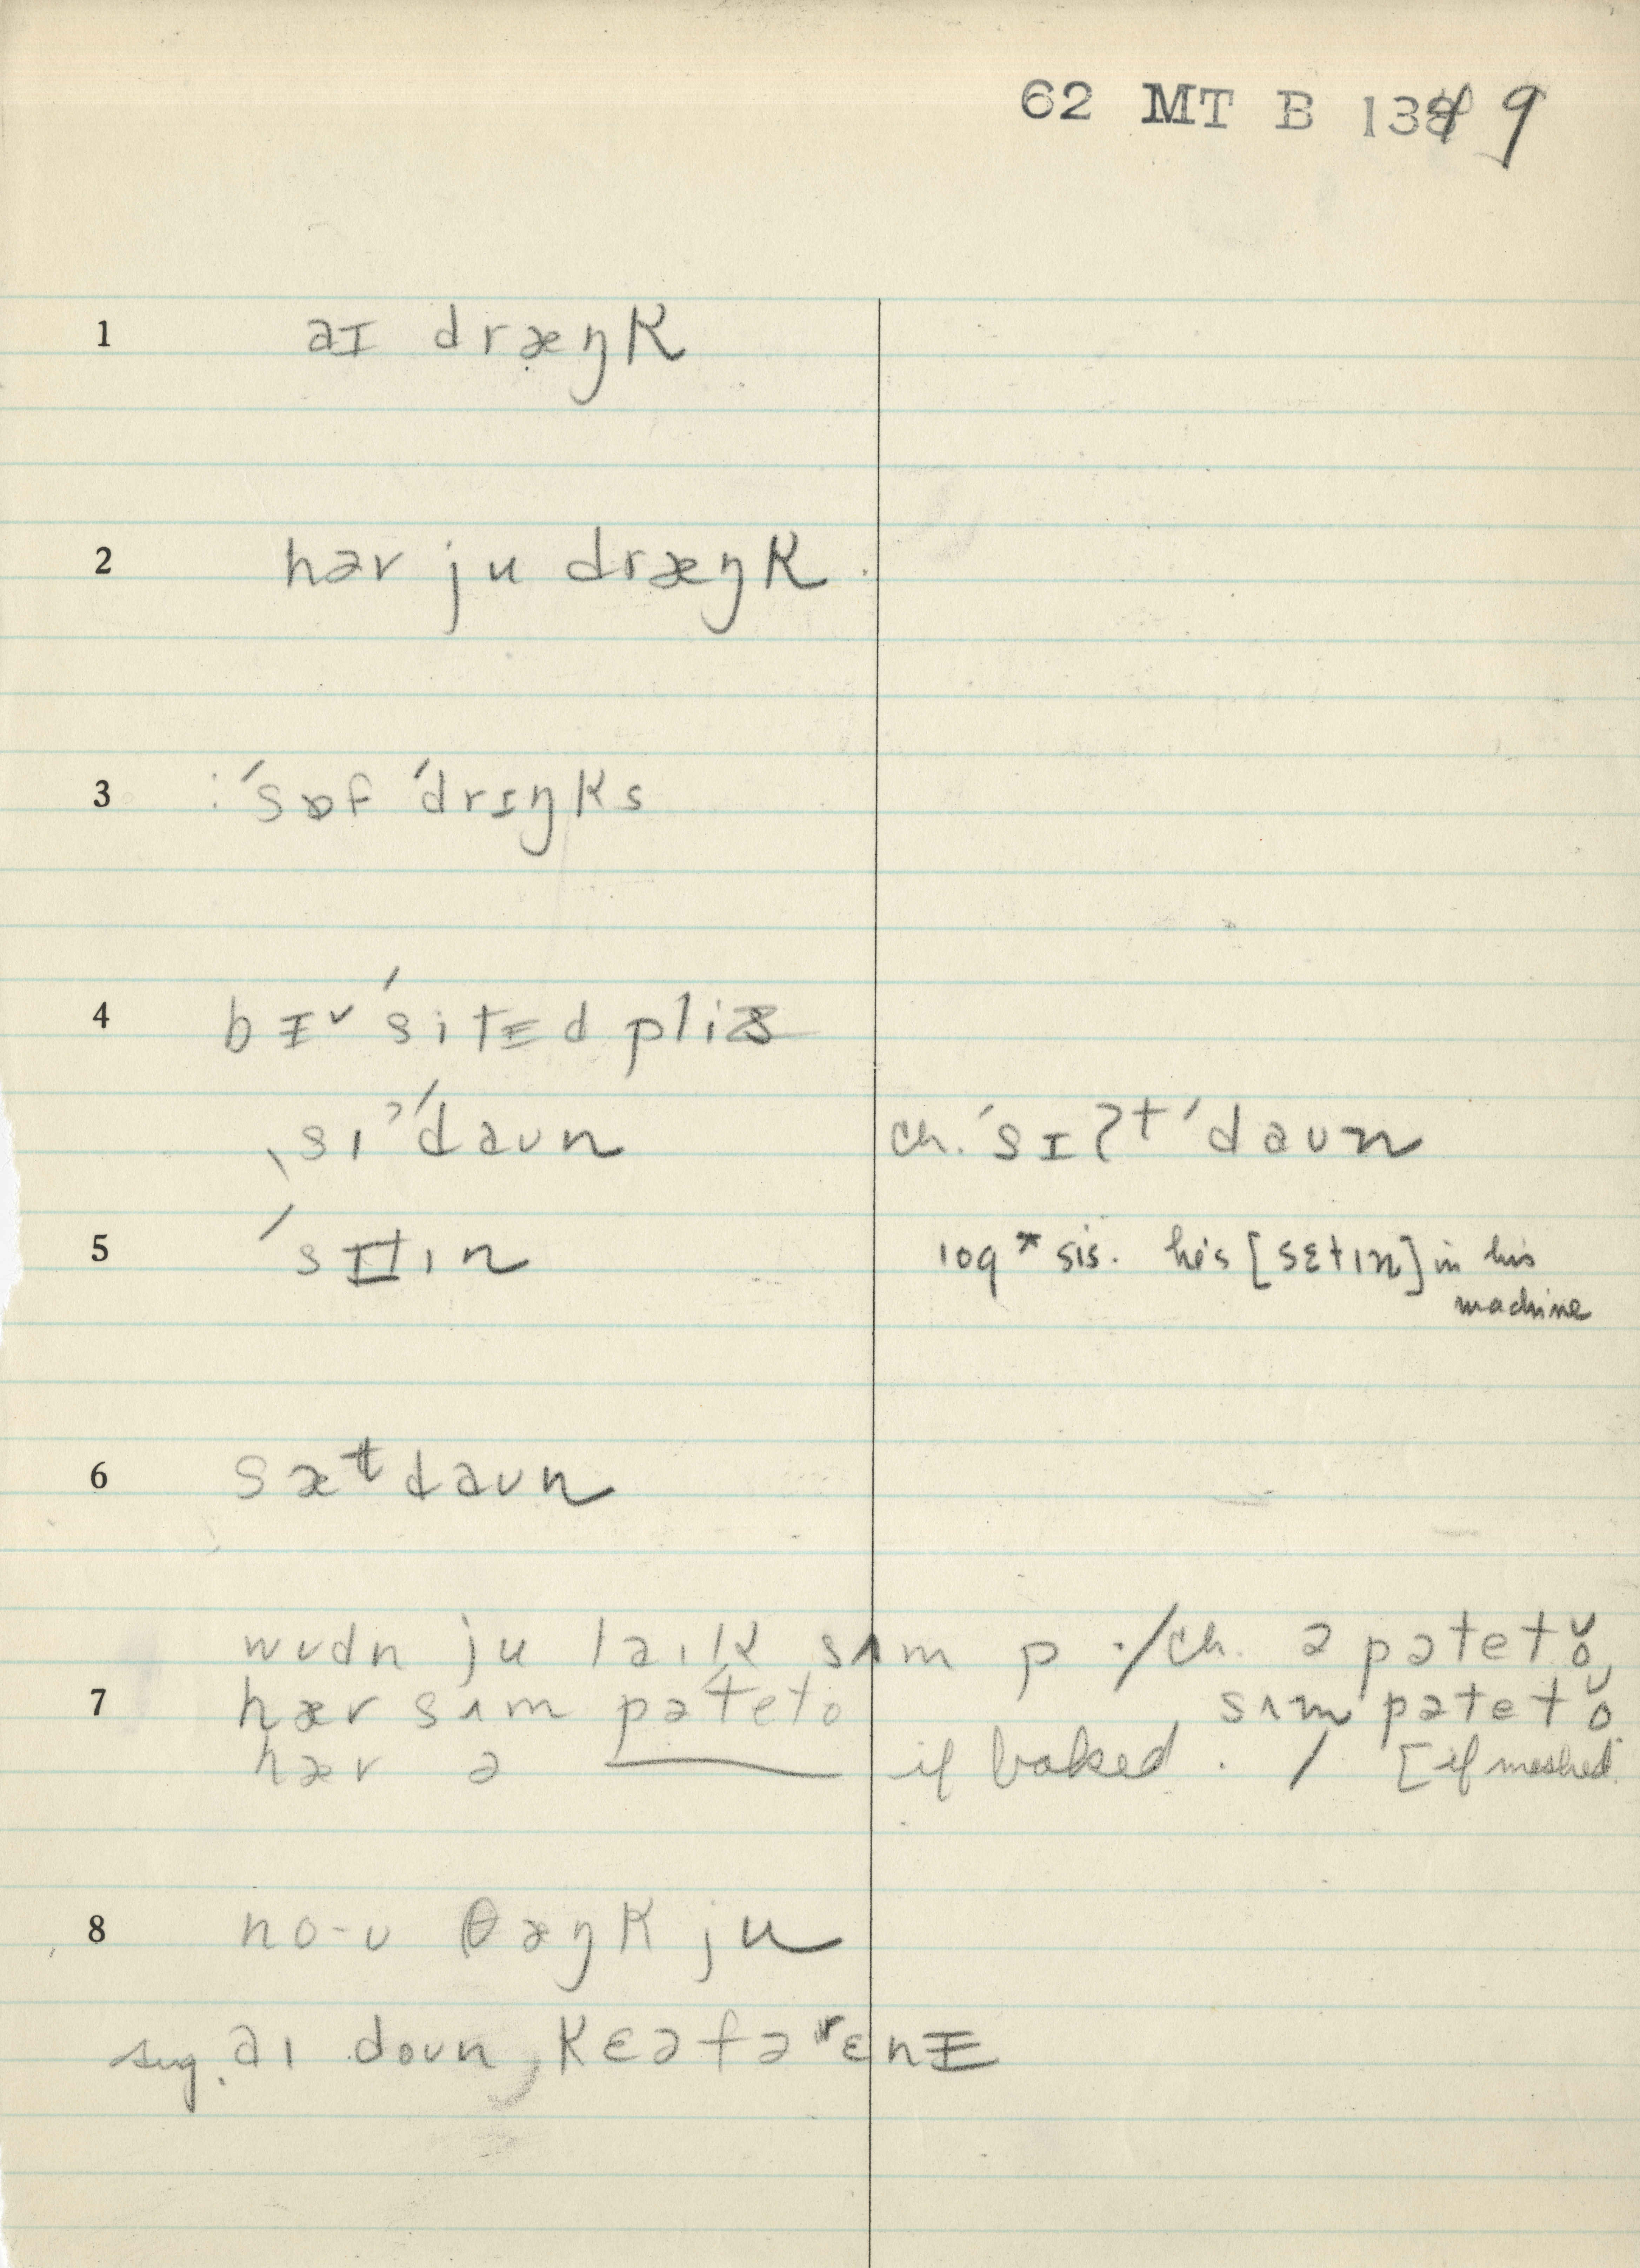 62 MT B 134 9
1 aɪ dræŋk
2 həv ju dræŋk.
3 ˈsɒf ˈdrɪŋks
4 bɪ ˇ ˈsitɪd pliz
ˌsɪˀˈdaʊn ch. ˈsɪʔtˈdaʊn
5 ˈsɪtɪn 109* sis. he's [sɛtɪn] in his
machine
6 sæᵗdaʊn
wʊdn ju laɪk sʌm p ·/ch. ə pətetŏ,
7 hæv sʌm pəˈteto sʌm pətetŏ
hæv ə ——— if baked. / [if mashed.
8 no-ʊ θæŋk ju
sug. aɪ doʊn, kɛə fəʳɛnɪ